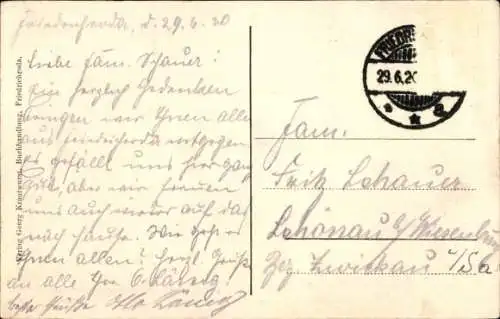 Friedrichroda, d. 29.6.20
Liebe Fam. Schauer!
Ein herzlich Gedenken
bringen wir Ihnen allen
aus Friedrichroda entgegen.
es gefällt uns hier ganz
gut, aber wir freuen
uns auch wieder auf das
nach Hause. Wie geht es
Ihnen allen? Herzl. Grüße
an alle Ihre
beste Grüße
Verlag Georg Buchhandlung, Friedrichroda.
FRIEDR
29.6.20
Fam.
Fritz Schauer
Schönau b/Wiesenburg
Bez Zwickau i/Sa